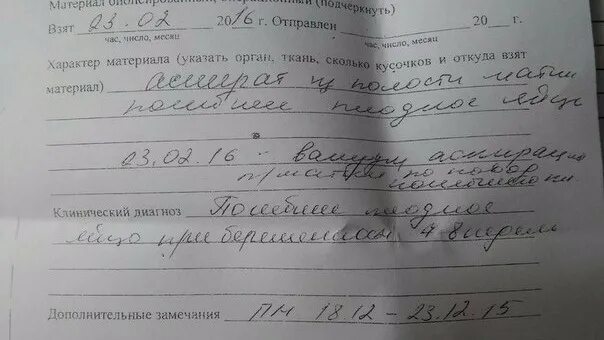 Материал биопсированный, операционный (подчеркнуть)
Взят 23.02 2016 г. Отправлен 20 г.
час, число, месяц час, число, месяц
Характер материала (указать орган, ткань, сколько кусочков и откуда взят
материал) аспират из полости матки
погибшее плодное яйцо
23.02.16 - вакуум аспирация
п/матки по повод
Клинический диагноз Погибшее плодное
яйцо при беременности 4 8 недель
Дополнительные замечания ПМ 18.12 - 23.12.15